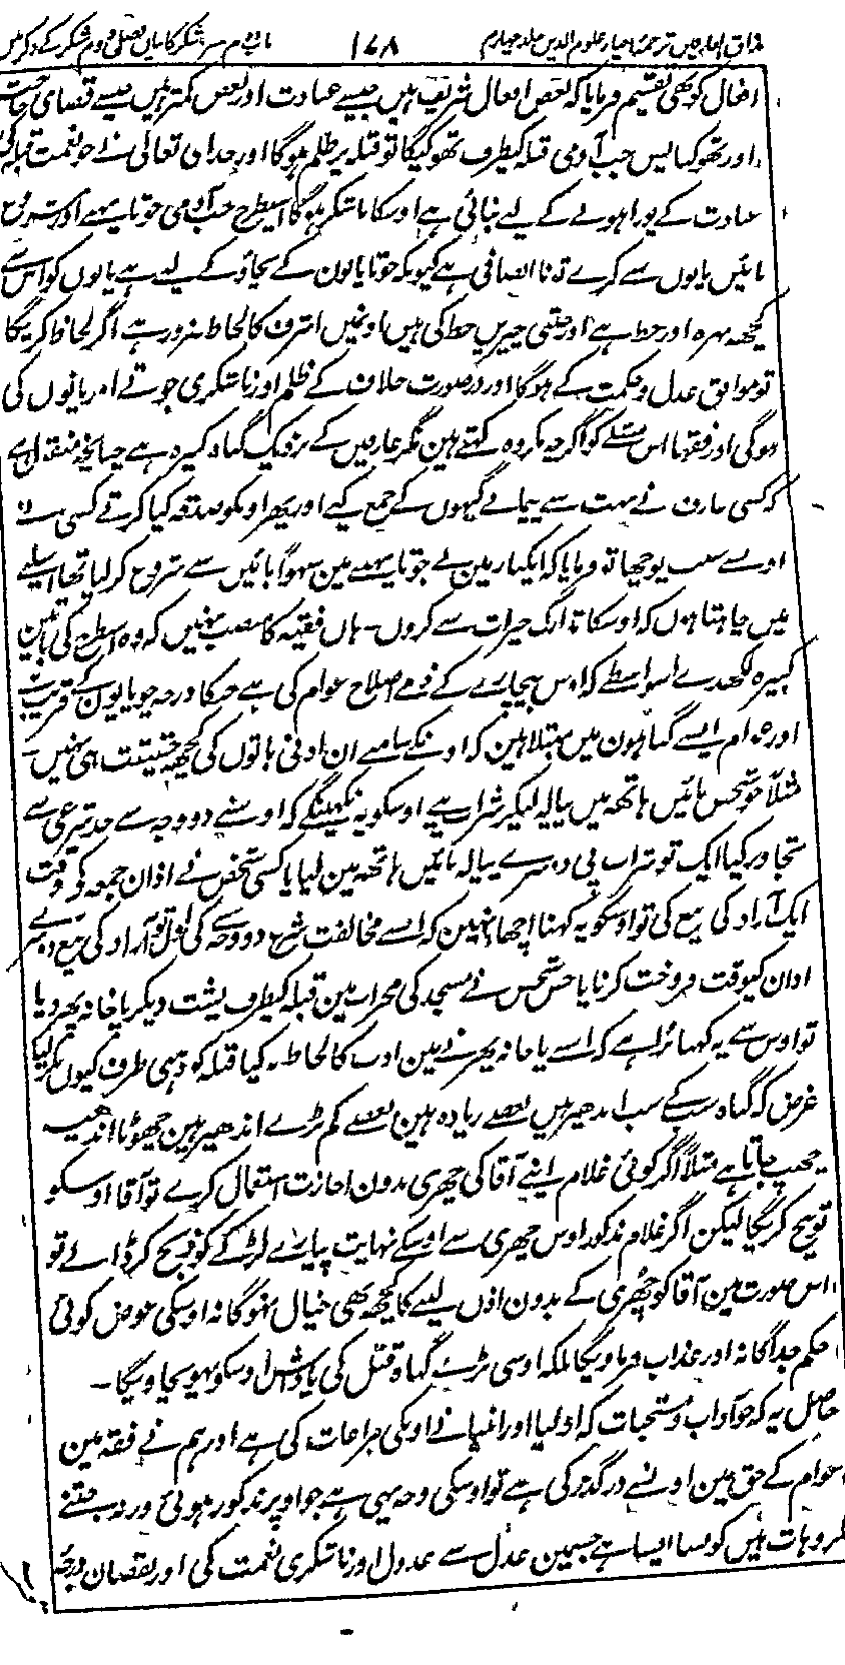 مذاق العارفین ترجمۂ احیاء علوم الدین جلد چہارم ۱۶۸ باب دوم صبر و شکر کا بیان فصل دوم شکر کے ذکر میں
افعال کو بھی تقسیم فرمایا کہ بعض افعال شریف ہیں جیسے عبادت اور بعض کمتر ہیں جیسے قضای حاجت
اور تھوکنا پس جب آدمی قبلہ کیطرف تھوکیگا تو قبلہ پر ظلم ہوگا اور خداے تعالی نے جو نعمت قبلہ کی
عبادت کے پورا ہونے کے لیے بنائی ہے اوسکا ناشکر ہوگا اسیطرح جب آدمی جوتا پہنے اور شروع
بائیں پانوں سے کرے تو نا انصافی ہے کیونکہ جوتا پانون کے بچاؤ کے لیے ہے پانوں کو اس سے
کچھہ بہرہ اور حظ ہے اور جتنی چیزیں حظ کی ہیں اونمیں اشرف کا لحاظ ضرور ہے اگر لحاظ کریگا
تو موافق عدل و حکمت کے ہوگا اور درصورت خلاف کے ظلم اور ناشکری جوتے اور پانوں کی
ہوگی اور فقہا اس مسئلے کو اگرچہ مکروہ کہتے ہین مگر عارفین کے نزدیک گناہ کبیرہ ہے چنانچہ منقول ہے
کہ کسی عارف نے بہت سے پیمانے گیہوں کے جمع کیے اور پھر اونکو صدقہ کیا کرتے کسی نے
اونسے سبب پوچھا تو فرمایا کہ ایکبار مین نے جوتا پہنے مین سہواً بائیں سے شروع کر لیا تھا اسلیے
میں چاہتا ہوں کہ اوسکا تدارک خیرات سے کروں - ہاں فقیہ کا منصب نہیں کہ وہ اسطرح کی باتین
کبیرہ لکھدے اسواسطے کہ اوس بیچارے کے ذمے اصلاح عوام کی ہے جنکا درجہ چوپایون کے قریب ہے
اور عوام ایسے گناہون میں مبتلا ہین کہ اونکے سامنے ان ادنی باتوں کی کچھہ حقیقت ہی نہیں -
مثلاً جو شخص بائیں ہاتھہ میں پیالہ لیکر شراب پیے اوسکو یہ نکہینگے کہ اوسنے دو وجہ سے حد شرعی سے
تجاوز کیا ایک تو شراب پی دوسرے پیالہ بائیں ہاتھہ مین لیا یا کسی شخص نے اذان جمعہ کے وقت
ایک آزاد کی بیع کی تو اوسکو یہ کہنا اچھا نہین کہ اسنے مخالفت شرع دو وجہ سے کی اول تو آزاد کی بیع دوسرے
اذان کیوقت فروخت کرنا یا جس شخص نے مسجد کی محراب مین قبلہ کیطرف پشت دیکر پاخانہ پھر دیا
تو اوس سے یہ کہنا برا ہے کہ اسنے پاخانہ پھرنے مین ادب کا لحاظ نہ کیا قبلہ کو دہنی طرف کیوں نکر لیا
غرض کہ گناہ سب کے سب اندھیر ہیں بعضے زیادہ ہین بعضے کم بڑے اندھیر مین چھوٹا اندھیر
چھپ جاتا ہے مثلاً اگر کوئی غلام اپنے آقا کی چھری بدون اجازت استعمال کرے تو آقا اوسکو
توبیخ کریگا لیکن اگر غلام مذکور اوس چھری سے اوسکے نہایت پیارے لڑکے کو ذبح کر ڈالے تو
اس صورت مین آقا کو چھری کے بدون اذن لینے کا کچھہ بھی خیال نہوگا نہ اوسکی عوض کوئی
حکم جداگانہ اور عذاب فرماویگا بلکہ اوسی بڑے گناہ قتل کی پاداش اوسکو پہونچاویگا -
حاصل یہ کہ جو آداب و مستحبات کہ اولیا اور انبیا نے اونکی مراعات کی ہے اور ہم نے فقہ مین
عوام کے حق مین اونسے درگذر کی ہے تو اوسکی وجہ یہی ہے جو اوپر مذکور ہوئی ورنہ جتنے
مکروہات ہیں کونسا ایسا ہے جسمین عدل سے عدول اور ناشکری نعمت کی اور نقصان درجہ